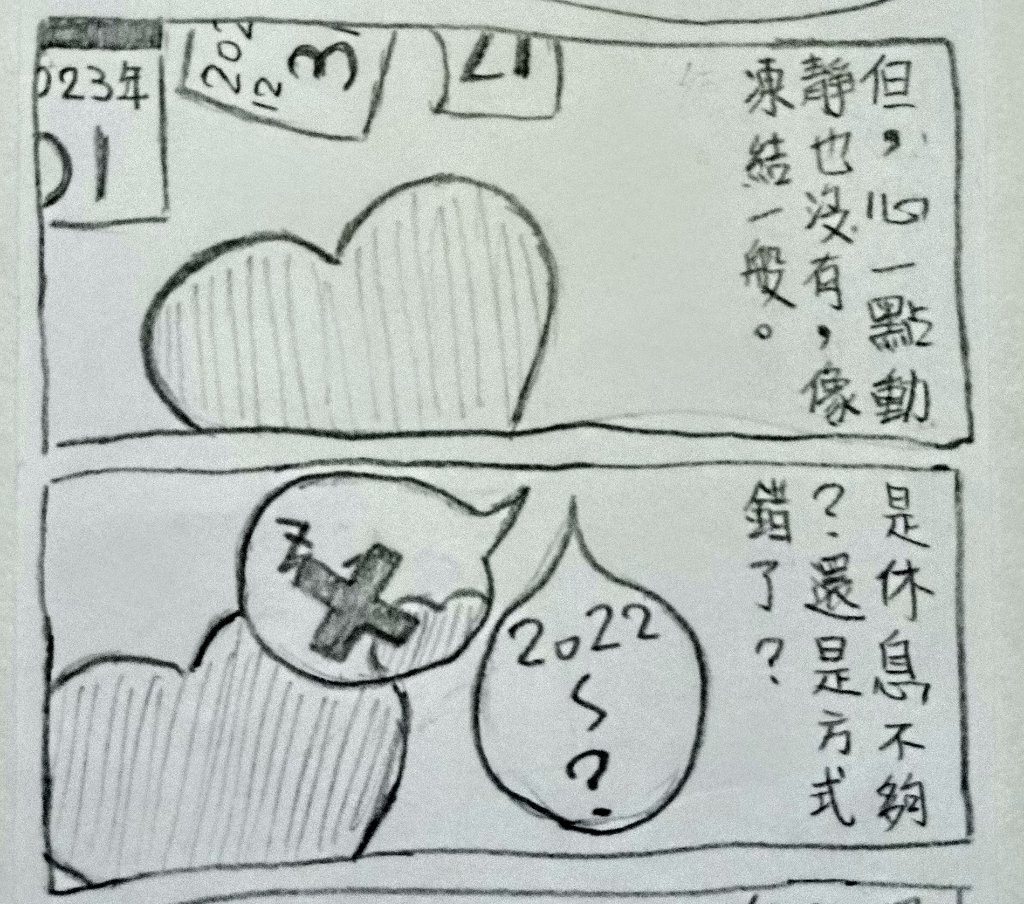 但，心一點動
靜也沒有，像
凍結一般。
2023年
01
2022
12
31
21
是休息不夠
？還是方式
錯了？
z
2022
~
?